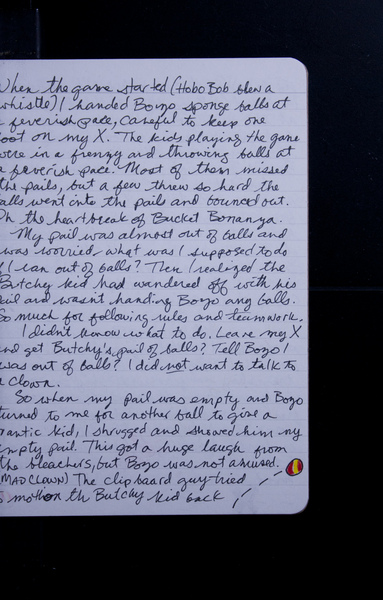 When the game started (Hobo Bob blew a
whistle) I handed Bozo sponge balls at
a feverish pace, careful to keep one
foot on my X. The kids playing the game
were in a frenzy and throwing balls at
a feverish pace. Most of them missed
the pails, but a few threw so hard the
balls went into the pails and bounced out.
Oh the heartbreak of Bucket Bonanza.
My pail was almost out of balls and
I was worried - what was I supposed to do
if I ran out of balls? Then I realized the
Butchy kid had wandered off with his
pail and wasn't handing Bozo any balls.
So much for following rules and teamwork.
I didn't know what to do. Leave my X
and get Butchy's pail of balls? Tell Bozo I
was out of balls? I did not want to talk to
a clown.
So when my pail was empty and Bozo
turned to me for another ball to give a
frantic kid, I shrugged and showed him my
empty pail. This got a huge laugh from
the bleachers, but Bozo was not amused.
(MAD CLOWN) The clipboard guy tried
to motion th Butchy kid back